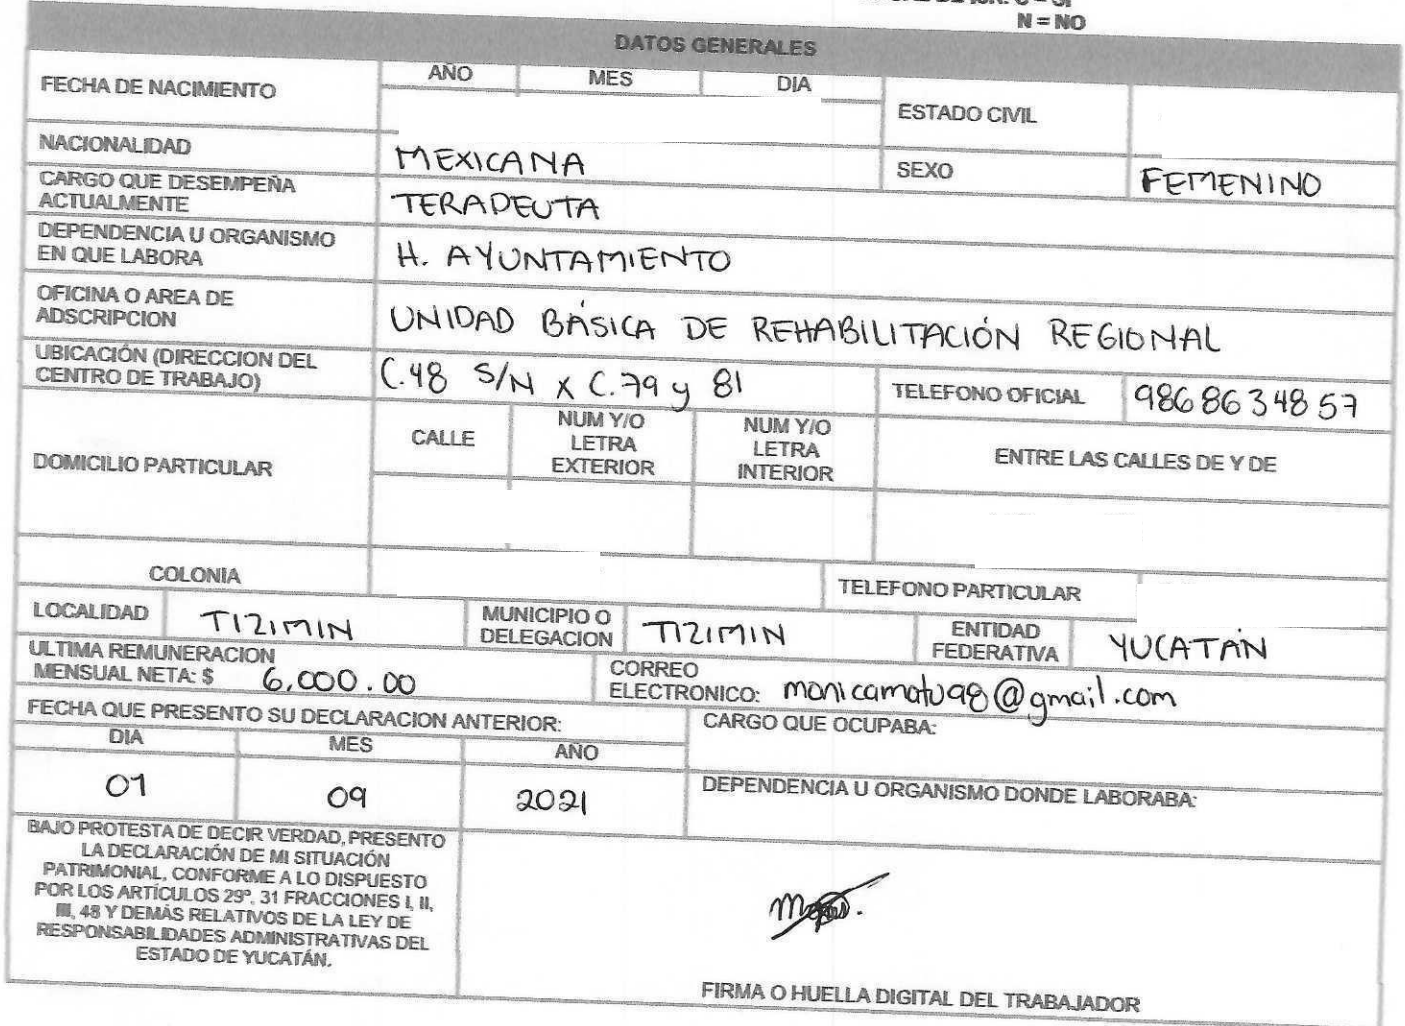 N = NO
DATOS GENERALES
FECHA DE NACIMIENTO
AÑO MES DIA
ESTADO CIVIL
NACIONALIDAD MEXICANA SEXO FEMENINO
CARGO QUE DESEMPEÑA
ACTUALMENTE
TERAPEUTA
DEPENDENCIA U ORGANISMO
EN QUE LABORA
H. AYUNTAMIENTO
OFICINA O AREA DE
ADSCRIPCION
UNIDAD BÁSICA DE REHABILITACIÓN REGIONAL
UBICACIÓN (DIRECCION DEL
CENTRO DE TRABAJO)
C.48 S/N x C.79 y 81
TELEFONO OFICIAL 9868634857
DOMICILIO PARTICULAR
CALLE
NUM Y/O
LETRA
EXTERIOR
NUM Y/O
LETRA
INTERIOR
ENTRE LAS CALLES DE Y DE
COLONIA
TELEFONO PARTICULAR
LOCALIDAD TIZIMIN
MUNICIPIO O
DELEGACION
TIZIMIN
ENTIDAD
FEDERATIVA
YUCATÁN
ULTIMA REMUNERACION
MENSUAL NETA: $ 6,000.00
CORREO
ELECTRONICO: monicamatu98@gmail.com
FECHA QUE PRESENTO SU DECLARACION ANTERIOR:
CARGO QUE OCUPABA:
DIA MES AÑO
01 09 2021
DEPENDENCIA U ORGANISMO DONDE LABORABA:
BAJO PROTESTA DE DECIR VERDAD, PRESENTO
LA DECLARACIÓN DE MI SITUACIÓN
PATRIMONIAL, CONFORME A LO DISPUESTO
POR LOS ARTÍCULOS 29º, 31 FRACCIONES I, II,
III, 48 Y DEMÁS RELATIVOS DE LA LEY DE
RESPONSABILIDADES ADMINISTRATIVAS DEL
ESTADO DE YUCATÁN.
FIRMA O HUELLA DIGITAL DEL TRABAJADOR